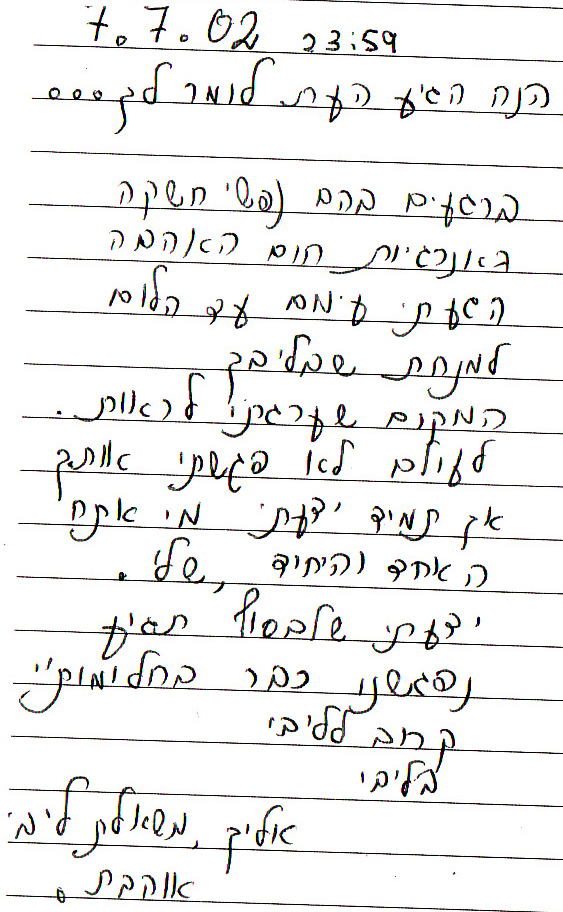 7.7.02 23:59
הנה הגיע העת לומר לך...
ברגעים בהם נפשי חשקה
באנרגיות חום האהבה
הגעתי עימם עד הלום
למנחת שבליבך
המקום שערגתי לראות.
לעולם לא פגשתי אותך
אך תמיד ידעתי מי אתה
האחד והיחיד, שלי.
ידעתי שלבסוף תגיע
נפגשנו כבר בחלימותיי
קרוב לליבי
בליבי
אליך, משאלת ליבי
אוהבת.